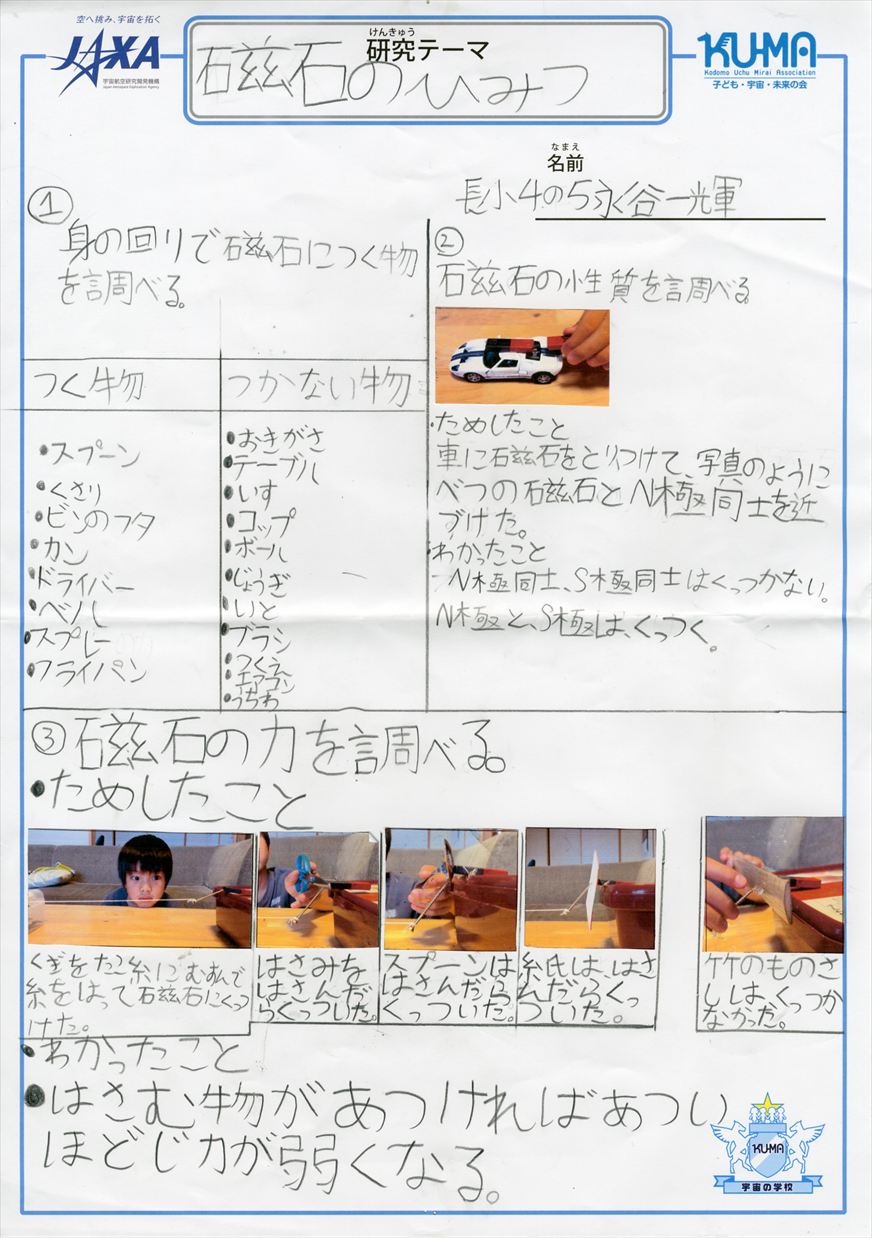 空へ挑み、宇宙を拓く
JAXA
宇宙航空研究開発機構
Japan Aerospace Exploration Agency
けんきゅう
研究テーマ
磁石のひみつ
KU-MA
Kodomo Uchu Mirai Association
子ども・宇宙・未来の会
なまえ
名前
長小4の5永谷一輝
①
身の回りで磁石につく物
を調べる。
つく物
つかない物
・スプーン
・くさり
・ビンのフタ
・カン
・ドライバー
・ベル
・スプレー
・フライパン
・おきがさ
・テーブル
・いす
・コップ
・ボール
・じょうぎ
・いと
・ブラシ
・つくえ
・エアコン
・うちわ
②
磁石の性質を調べる
・ためしたこと
車に磁石をとりつけて、写真のように
べつの磁石とN極同士を近
づけた。
・わかったこと
N極同士、S極同士はくっつかない。
N極と、S極は、くっつく。
③磁石の力を調べる。
・ためしたこと
くぎをたこ糸にむすんで
糸をはって磁石にくっつ
けた。
はさみを
はさんだ
らくっついた。
スプーンは
はさんだら
くっついた。
紙は、はさ
んだらくっ
ついた。
竹のものさ
しは、くっつか
なかった。
・わかったこと
・はさむ物があつければあつい
ほどじ力が弱くなる。
KU-MA
宇宙の学校